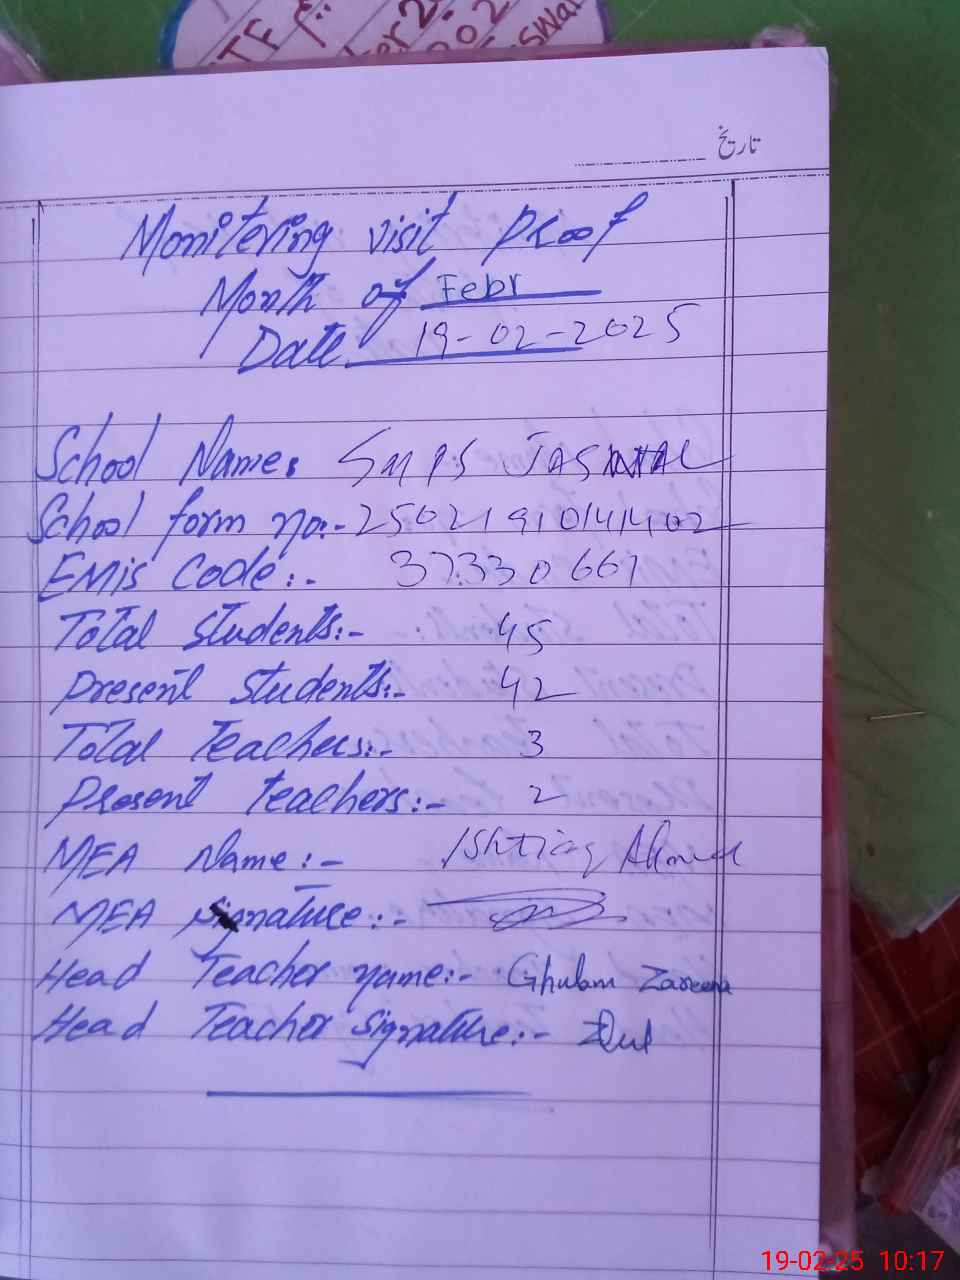 TTF
تاریخ
Monitering visit Proof
Month of Febr
Date 19-02-2025
School Name: SMPS JASWAL
School form no:- 25021910141402
EMis Code:- 37330661
Total Students:- 45
Present Students:- 42
Total Teachers:- 3
Present Teachers:- 2
MEA Name:- Ishtiaq Ahmed
MEA Signature:-
Head Teacher name:- Ghulam Zareena
Head Teacher Signature:-
19-02-25 10:17